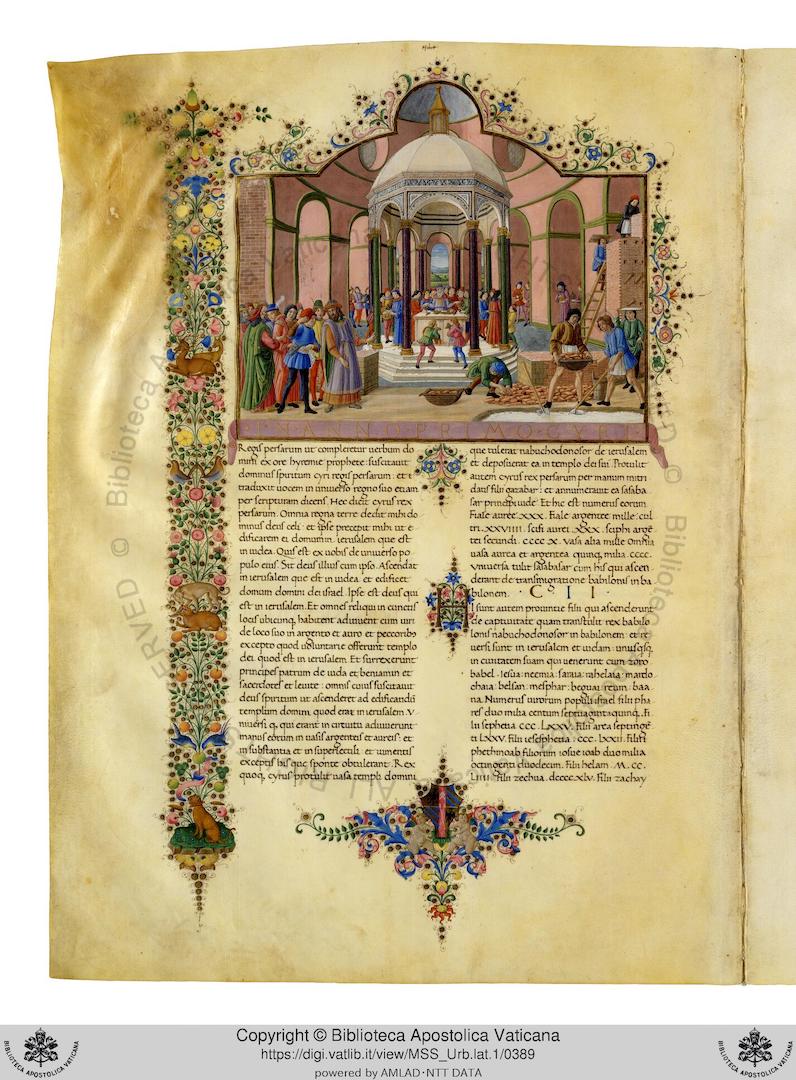 IN · ANNO · PRIMO · CYRI
Regis persarum ut compleretur uerbum do
mini ex ore hyremie prophete: suscitauit
dominus spiritum cyri regis persarum: et t
raduxit uocem in uniuerso regno suo etiam
per scripturam dicens. Hec dicit cyrus rex
persarum. Omnia regna terre dedit mihi do
minus deus celi: et ipse precepit mihi ut e
dificarem ei domum in ierusalem que est
in iudea. Quis est ex uobis de uniuerso po
pulo eius. Sit deus illius cum ipso. Ascendat
in ierusalem que est in iudea et edificet
domum domini dei israel. Ipse est deus qui
est in ierusalem. Et omnes reliqui in cunctis
locis ubicunq; habitent adiuuent eum uiri
de loco suo in argento et auro et peccoribus
excepto quod uoluntarie offerunt templo
dei quod est in ierusalem. Et surrexerunt
principes patrum de iuda et beniamin et
sacerdotes et leuite: omnis cuius suscitauit
deus spiritum ut ascenderet ad edificandū
templum domini quod erat in ierusalem V
niuersi q; qui erant in circuitu adiuuerunt
manus eorum in uasis argenteis et aureis: et
in substantia et in supellectili et iumentis
exceptis his que sponte obtulerant. Rex
quoq; cyrus protulit uasa templi domini
que tulerat nabuchodonosor de ierusalem
et deposuerat ea in templo dei sui. Protulit
autem cyrus rex persarum per manum mitri
datis filii gazabar: et annumerauit ea sasaba
sar principi iude. Et hic est numerus eorum.
Fiale auree. XXX. Fiale argentee mille: cul
tri. XXVIIII. scifi aurei. XXX. sciphi argē
tei secundi. cccc x. Vasa alia mille Omnia
uasa aurea et argentea quinq; milia. cccc.
Vniuersa tulit sasabasar cum his qui ascen
derant de transmigratione babilonis in ba
bilonem. · C · I I ·
H I sunt autem prouintie filii qui ascenderunt
de captiuitate quam transtulit rex babilo
lonis nabuchodonosor in babilonem: et re
uersi sunt in ierusalem et iudam: unusq;sq;
in ciuitatem suam qui uenerunt cum zoro
babel. Iesua: neemia: saraia: rahelaia: mardo
chaia: belsan: mesphar: beguai: reum: baa
na. Numerus uirorum populi israel filii pha
res duo milia centum septuagintaquinq;. Fi
lii sephetia ccc. LXXII. Filii area septingē
ti LXXV. Filii
phethmoab filiorum iosue ioab duo milia
octingenti duodecim. Filii helam. M. CC.
LIIII. Filii zechua. dcccc xlv. Filii zachay
RESERVED © Biblioteca Apostolica Vaticana
ALL RIGHTS RESERVED © Biblioteca
Copyright © Biblioteca Apostolica Vaticana
https://digi.vatlib.it/view/MSS_Urb.lat.1/0389
powered by AMLAD·NTT DATA
BIBLIOTECA APOSTOLICA VATICANA
BIBLIOTECA APOSTOLICA VATICANA